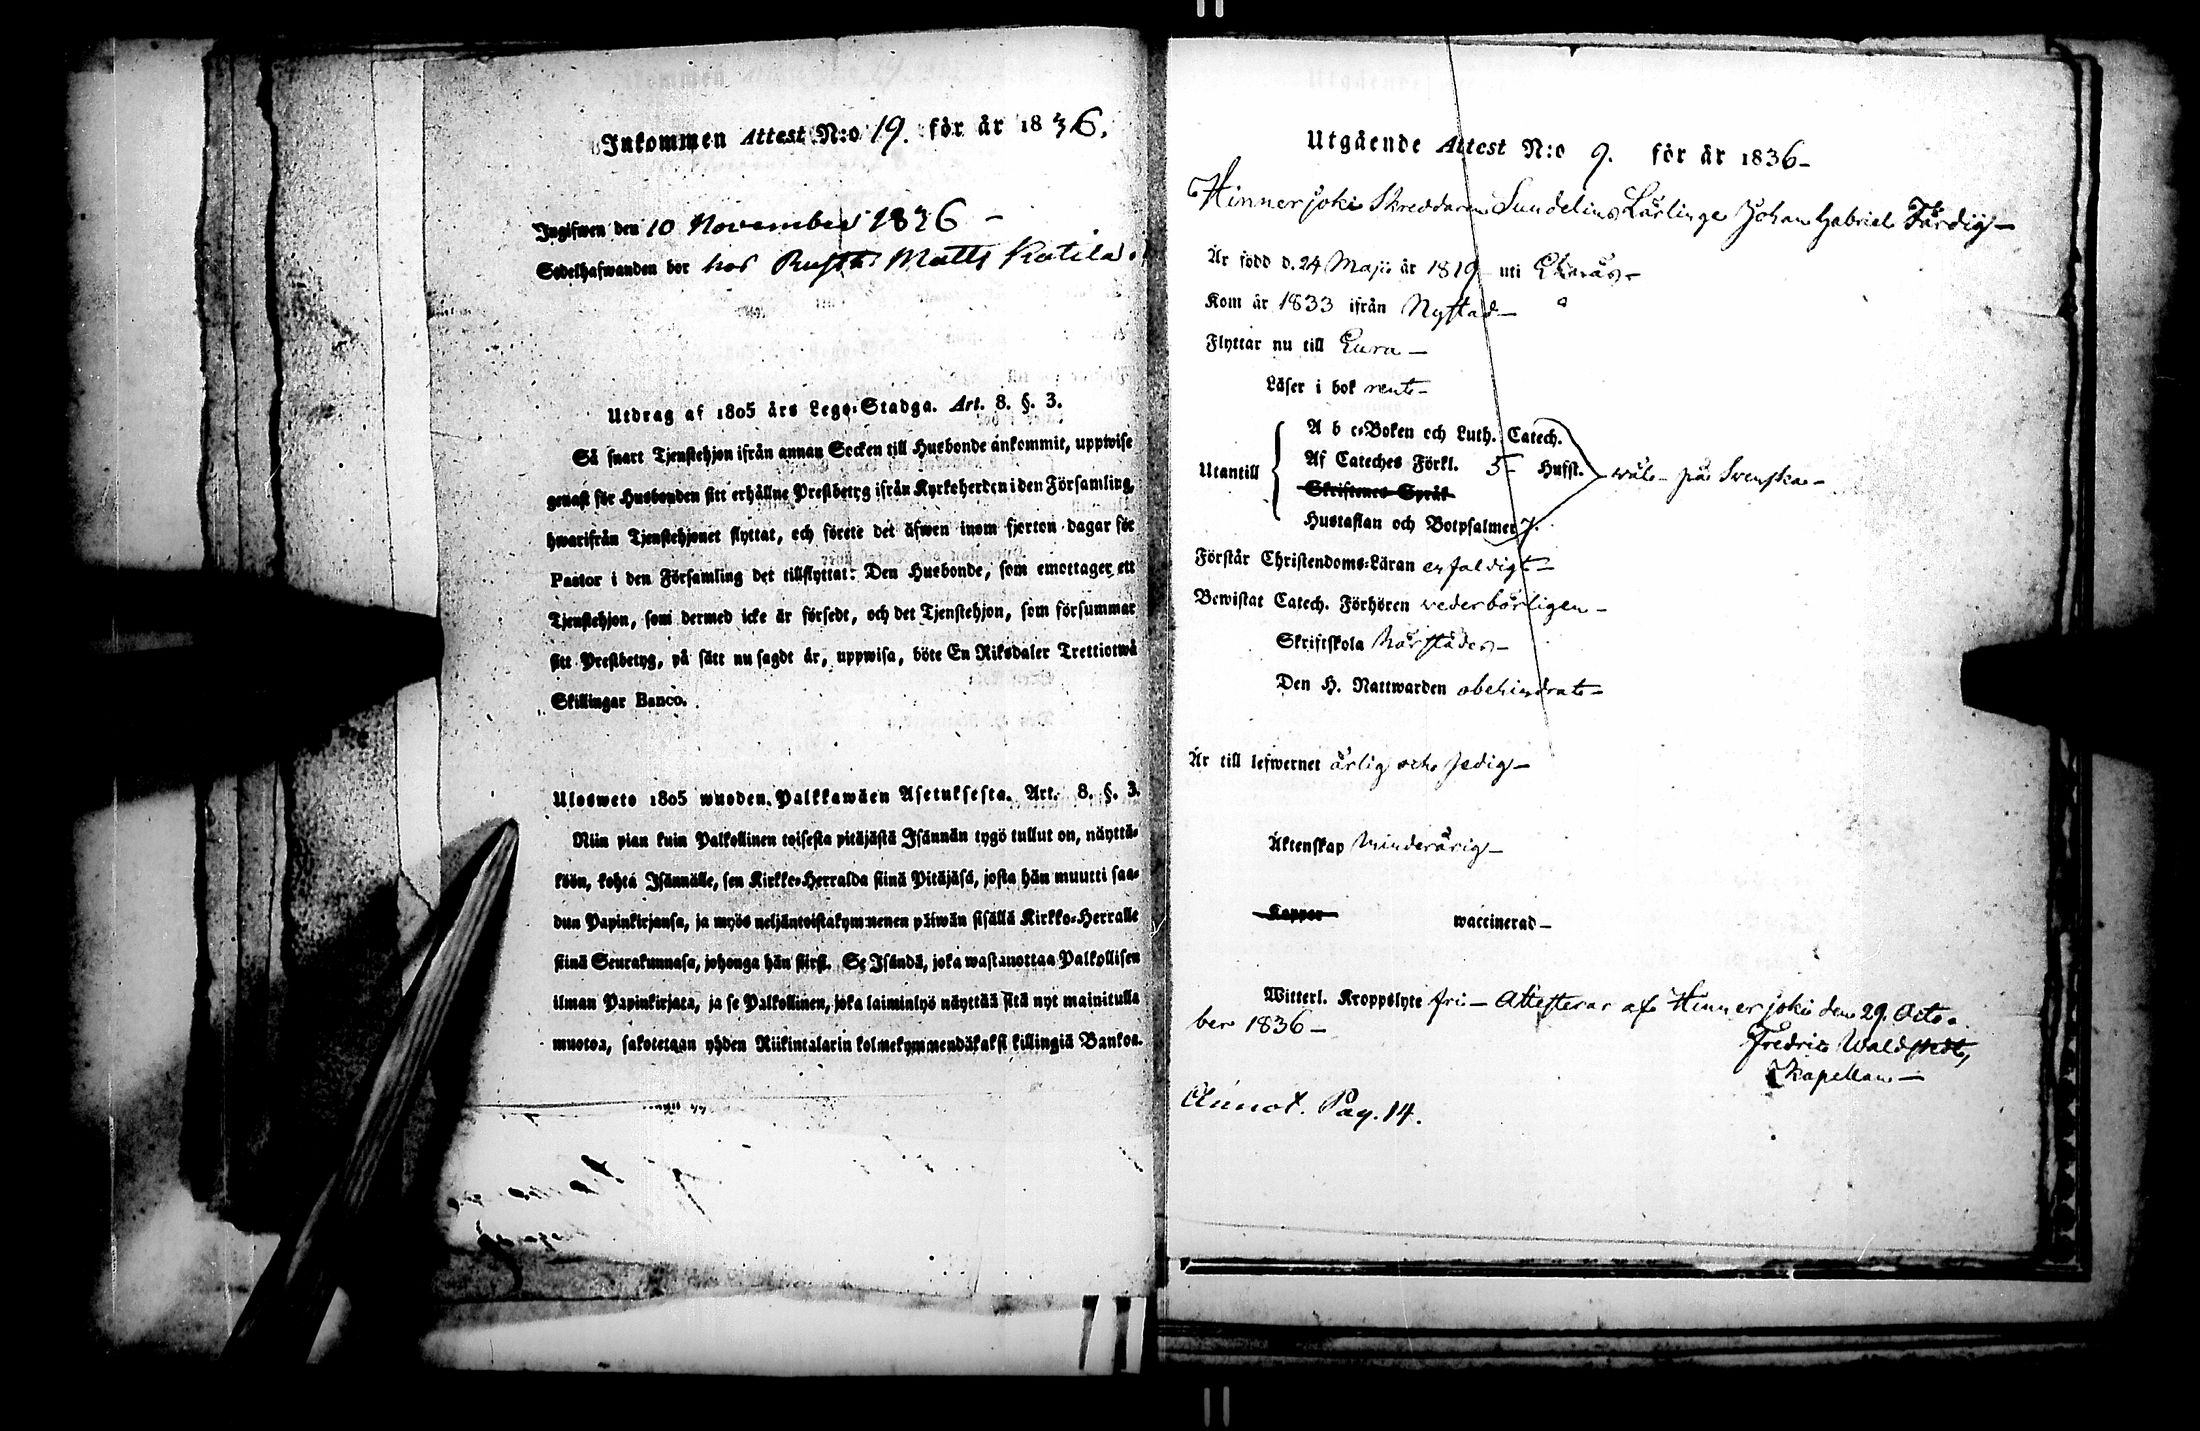 Inkommen Attest N:o 19. för år 1836.
Ingifwen den 10 November 1836 -
Sedelhafwanden bor hos Rusth: Matts Katila.
Utdrag af 1805 års Lego-Stadga. Art. 8. §. 3.
Så snart Tjenstehjon ifrån annan Socken till Husbonde ankommit, uppwise
genast för Husbonden sitt erhållne Prestbetyg ifrån Kyrkeherden i den Församling,
hwarifrån Tjenstehjonet flyttat, och förete det äfwen inom fjorton dagar för
Pastor i den Församling det tillflyttat: Den Husbonde, som emottager ett
Tjenstehjon, som dermed icke är försedt, och det Tjenstehjon, som försummar
sitt Prestbetyg, på sätt nu sagdt är, uppwisa, böte En Riksdaler Trettiotwå
Skillingar Banco.
Ulosweto 1805 wuoden Palkkawäen Asetuksesta. Art. 8. §. 3.
Niin pian kuin Palkollinen toisesta pitäjästä Isännän tygö tullut on, näyttä-
köön, kohta Isännälle, sen Kirkko-Herralda siinä Pitäjäsä, josta hän muutti saa-
dun Papinkirjansa, ja myös neljäntoistakymmenen päiwän sisällä Kirkko-Herralle
siinä Seurakunnasa, johonga hän siirsi. Se Isändä, joka wastanottaa Palkollisen
ilman Papinkirjata, ja se Palkollinen, joka laiminlyö näyttää sitä nyt mainitulla
muotoa, sakotetaan yhden Riikintalarin kolmekymmendäkaksi killingiä Bankoa.
Utgående Attest N:o 9. för år 1836-
Hinnerjoki Skreddaren Sundelins Lärlinge Johan Gabriel Färdig-
Är född d. 24 Maji år 1819 uti
Kom år 1833 ifrån Nystad-
Flyttar nu till Eura-
Läser i bok rent-
A b c-Boken och Luth. Catech.
Af Cateches Förkl. 5- Hufst.
Utantill wäl- på Svenska-
Skriftenes Språk
Hustaflan och Botpsalmer 7.
Förstår Christendoms-Läran enfaldigt-
Bewistat Catech. Förhören vederbörligen-
Skriftskola härstädes-
Den H. Nattwarden obehindrat-
Är till lefwernet ärlig och sedig-
Äktenskap minderårig-
Koppor waccinerad-
Witterl. Kroppslyte fri- Attesterar af Hinnerjoki den 29. Octo-
ber 1836-
Fredric Waldstedt,
Kapellan-
Annot. Pag. 14.